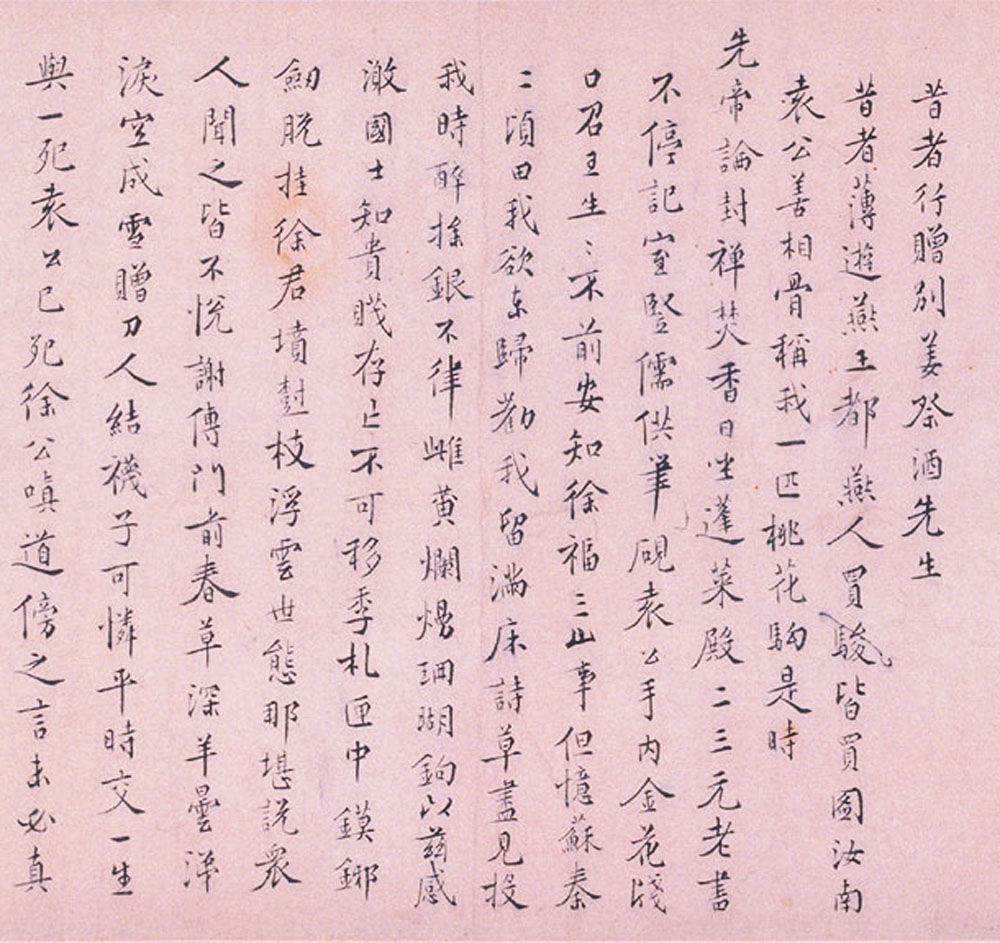 昔者行贈別姜祭酒先生
昔者薄遊燕王都燕人買駿皆買圖汝南
袁公善相骨稱我一匹桃花駒是時
先帝論封禅焚香日坐蓬萊殿二三元老書
不停記室豎儒供筆硯袁公手内金花牋
口召王生〻不前安知徐福三山事但憶蘇秦
二頃田我欲东歸勸我留滿床詩草盡見投
我時醉捈銀不律雌黄爛熳珊瑚鉤以兹感
激國士知貴賤存亡不可移季札匣中鏌鋣
劒脱挂徐君墳樹枝浮雲世態那堪説衆
人聞之皆不悦謝傅門前春草深羊曇涕
淚空成雪贈刀人結襪子可憐平時交一生
與一死袁公已死徐公嗔道傍之言未必真